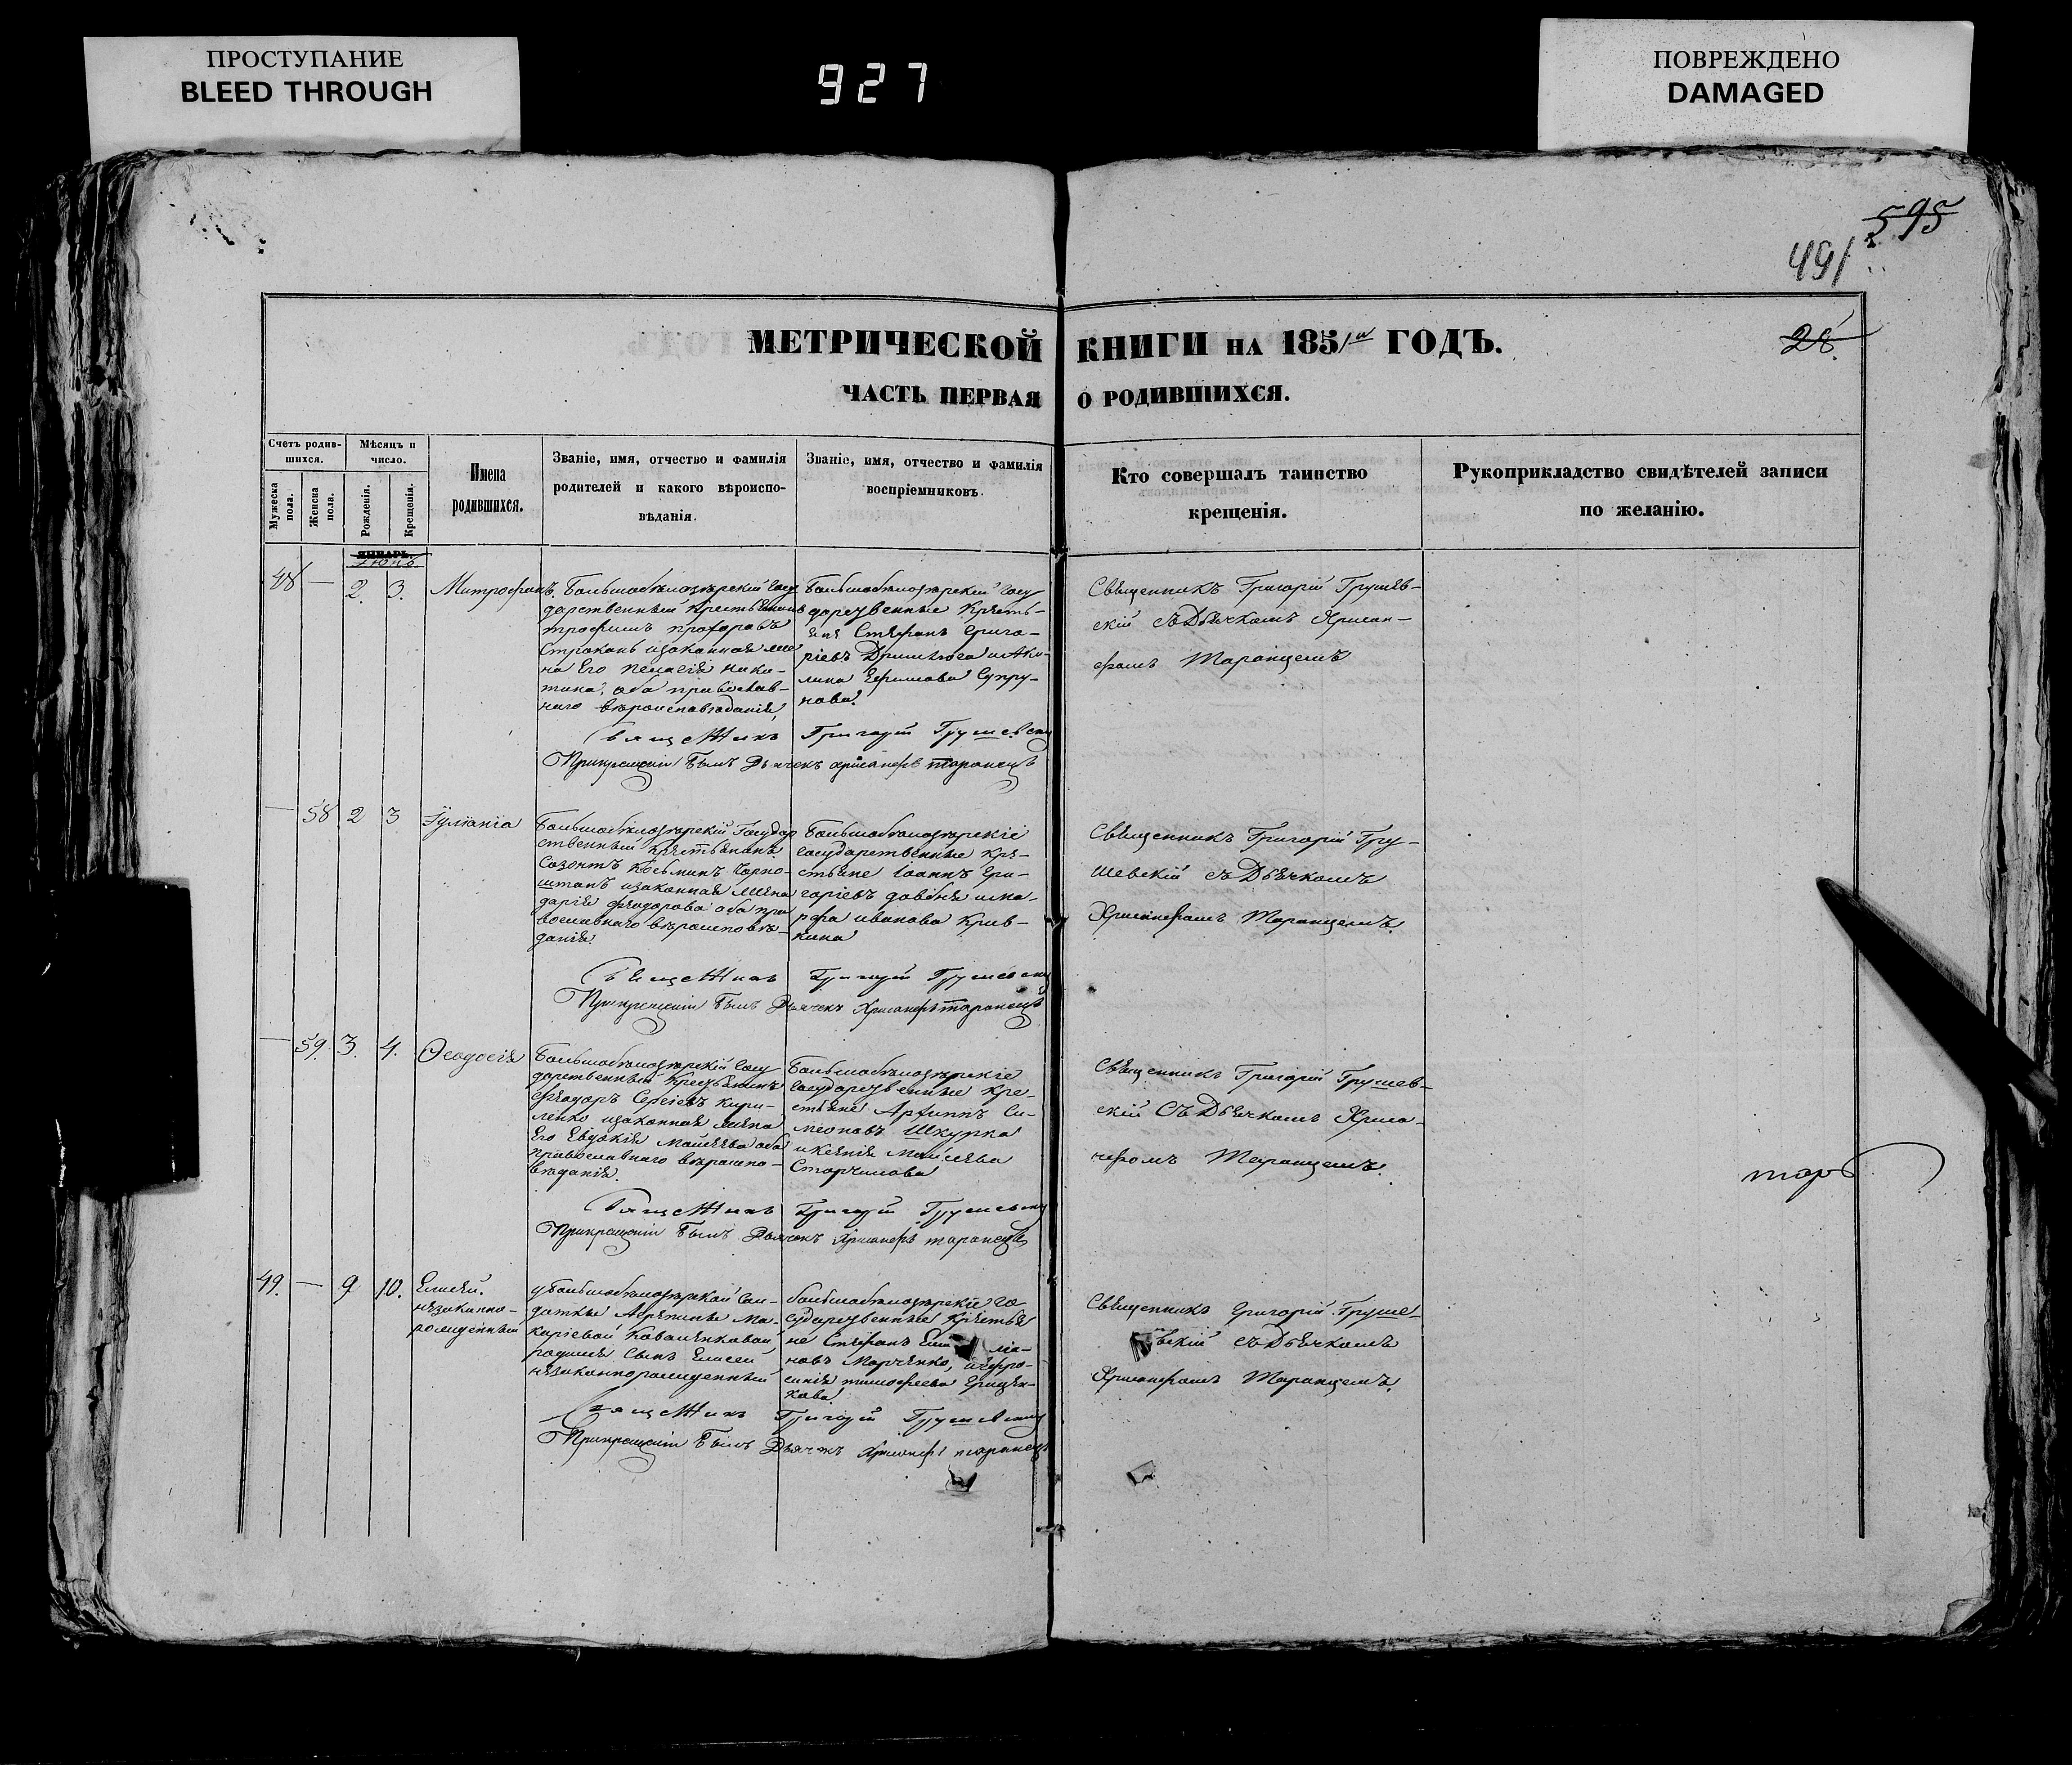 ПРОСТУПАНИЕ
BLEED THROUGH
927
ПОВРЕЖДЕНО
DAMAGED
595
491
МЕТРИЧЕСКОЙ КНИГИ НА 1851й ГОДЪ.
28.
ЧАСТЬ ПЕРВАЯ О РОДИВШИХСЯ.
Счетъ родив-
шихся.
Мужеска пола.
Женска пола.
Мѣсяцъ и
число.
Рожденія.
Крещенія.
Имена
родившихся.
Званіе, имя, отчество и фамилія
родителей и какого вѣроиспо-
вѣданія.
Званіе, имя, отчество и фамилія
воспріемниковъ.
Кто совершалъ таинство
крещенія.
Рукоприкладство свидѣтелей записи
по желанію.
ЯНВАРЬ.
Июнь
48 — 2. 3. Митрофанъ.
Большобѣлозѣрскій Госу
дарственный крестьянинъ
трофимъ прохоровъ
Строканъ изаконная же
на Его пелагія
оба православ-
наго вѣроисповѣданія,
Большобѣлозѣрскій Госу
дарственные Кресть-
яне Стефанъ Григо-
ріевъ иАку-
лина Ефимова Супру-
нова.
Священникъ Григорій Грушев-
скій съ Дьячкомъ Хрисан-
фомъ Таранцемъ
Священникъ Григорій Грушевскій
Прикрещеніи былъ Дьячекъ хрисанфъ таранецъ
— 58 2 3 Іуліанія
Большобѣлозѣрскій Государ
ственный крестьянинъ
Созонтъ Косьминъ Черно-
штанъ изаконная жена
дарія феодорова оба пра
вославнаго вѣроисповѣ-
данія.
Большобѣлозѣрскіе
Государственные Кре-
стьяне Іоаннъ Гри-
горіевъ довбня има-
рфа иванова Крив-
кина
Священникъ Григорій Гру-
шевскій съ Дьячкомъ
Хрисанфомъ Таранцемъ.
Священникъ Григорій Грушевскій
Прикрещеніи былъ Дьячекъ Хрисанфъ таранецъ
— 59. 3. 4. Ѳеодосія
Большобѣлозѣрскій Госу
дарственный Крестьянинъ
феодоръ Сергіевъ Кири-
ленко изаконная жена
Его Евдокія Моисеева оба
православнаго вѣроиспо-
вѣданія.
Большобѣлозѣрскіе
Государственные Кре-
стьяне Архипъ Си-
меоновъ Шкурка
иКсенія Моисеева
Сторчилова
Священникъ Григорій Грушев-
скій Съ Дьячкомъ Хриса-
нфомъ Таранцемъ.
Священникъ Григорій Грушевскій
Прикрещеніи былъ Дьячекъ Хрисанфъ таранецъ
49. — 9 10. Елисей.
незаконно-
рожденный
уБольшобѣлозѣрской Сол-
датки Ма-
каріевой Коваленковой
родился Сынъ Елисей
незаконнорожденный
большобѣлозѣрскіе го
сударственные Крестья
не Стефанъ
Марченко, иефро-
синія тимофеева Грицен-
кова
Священникъ Григорій Груше
вскій съ Дьячкомъ
Хрисанфомъ Таранцемъ.
Священникъ Григорій Грушевскій
Прикрещеніи былъ Дьячекъ Хрисанфъ таранецъ